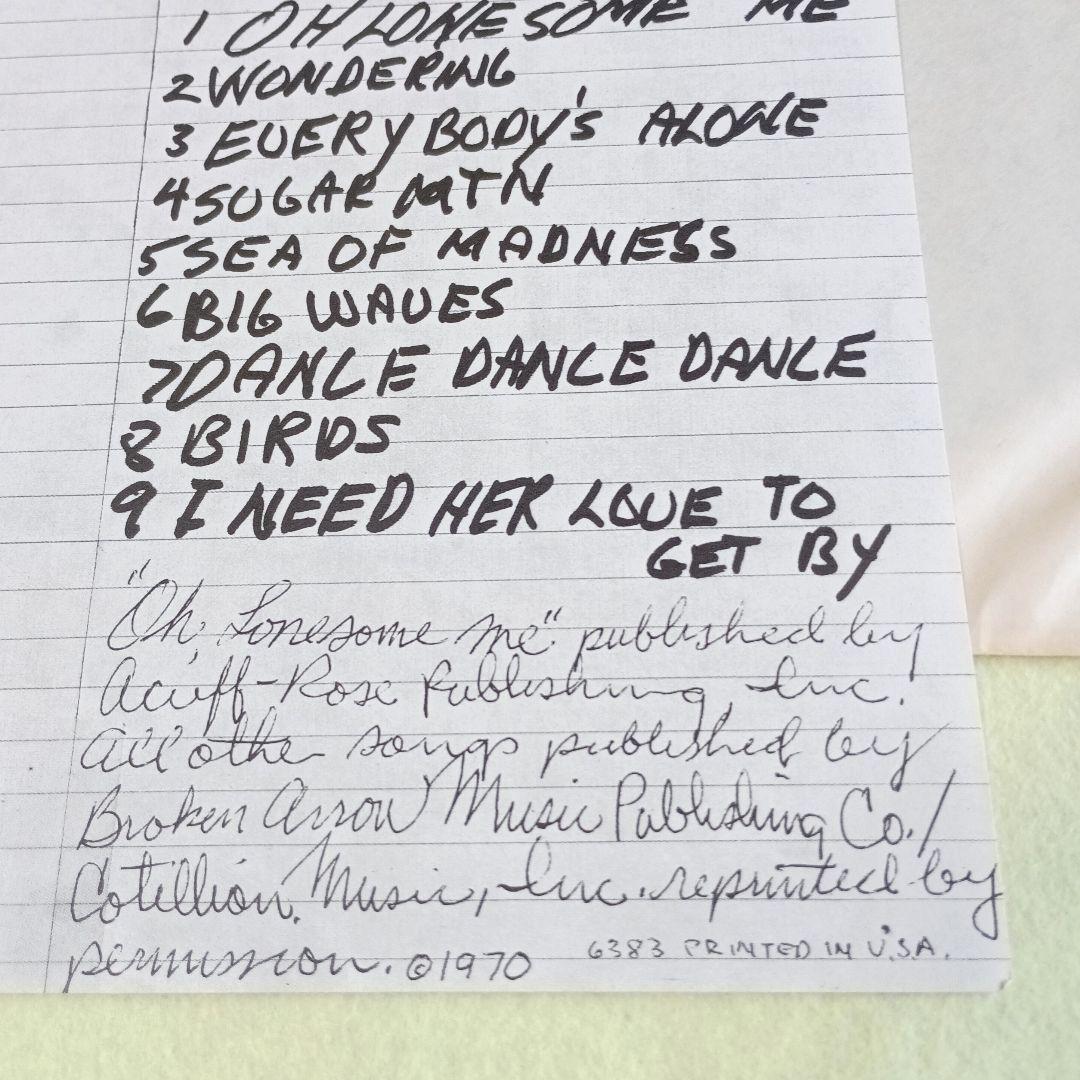 1 OH LONESOME ME
2 WONDERING
3 EVERYBODY'S ALONE
4 SUGAR MTN
5 SEA OF MADNESS
6 BIG WAVES
7 DANCE DANCE DANCE
8 BIRDS
9 I NEED HER LOVE TO
GET BY
"Oh, Lonesome Me" published by
Acuff-Rose Publishing, Inc.
All other songs published by
Broken Arrow Music Publishing Co./
Cotillion Music, Inc. reprinted by
permission. ©1970 6383 PRINTED IN U.S.A.